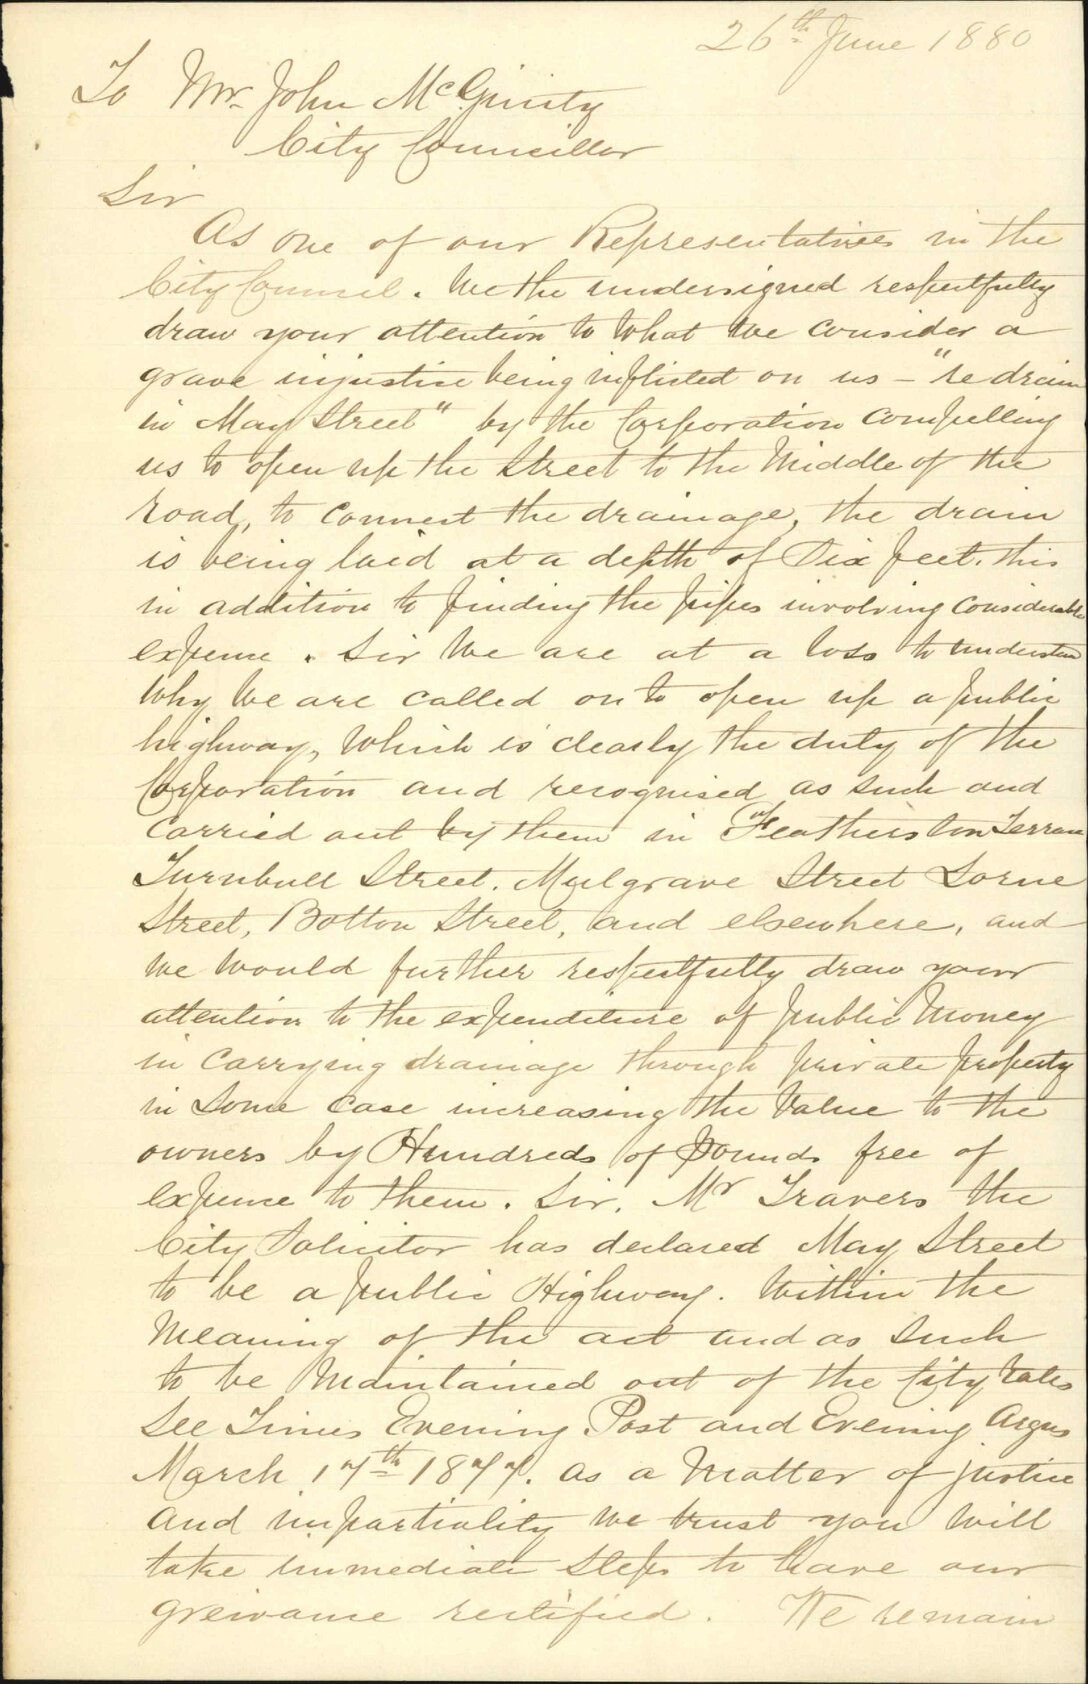 26th June 1880
To Mr John McGinity
City Councillor
Sir
As one of our Representatives in the
City Counsel. We the undersigned respectfully
draw your attention to what we consider a
grave injustice being inflicted on us – "re drain
in May Street" by the Corporation compelling
us to open up the Street to the Middle of the
road, to connect the drainage, the drain
is being laid at a depth of Six feet. this
in addition to finding the pipes involving considerable
expense. Sir We are at a loss to understan
Why We are called on to open up a public
highway, Which is clearly the duty of the
Corporation and recognised as such and
carried out by them in Featherston Terrace
Turnbull Street. Mulgrave Street Lorne
Street, Botton Street, and elsewhere, and
We Would further respectfully draw your
attention to the expenditure of public Money
in carrying drainage through private property
in Some case increasing the Value to the
owners by Hundreds of Pounds free of
expense to them. Sir, Mr Travers the
City Solicitor has declared May Street
to be a public Highway. Within the
Meaning of the act and as Such
to be Maintained out of the City rates
See Times Evening Post and Evening Argus
March 17th 1877. as a Matter of justice
and impartiality We trust you Will
take immediate Steps to have our
greivance rectified. We remain